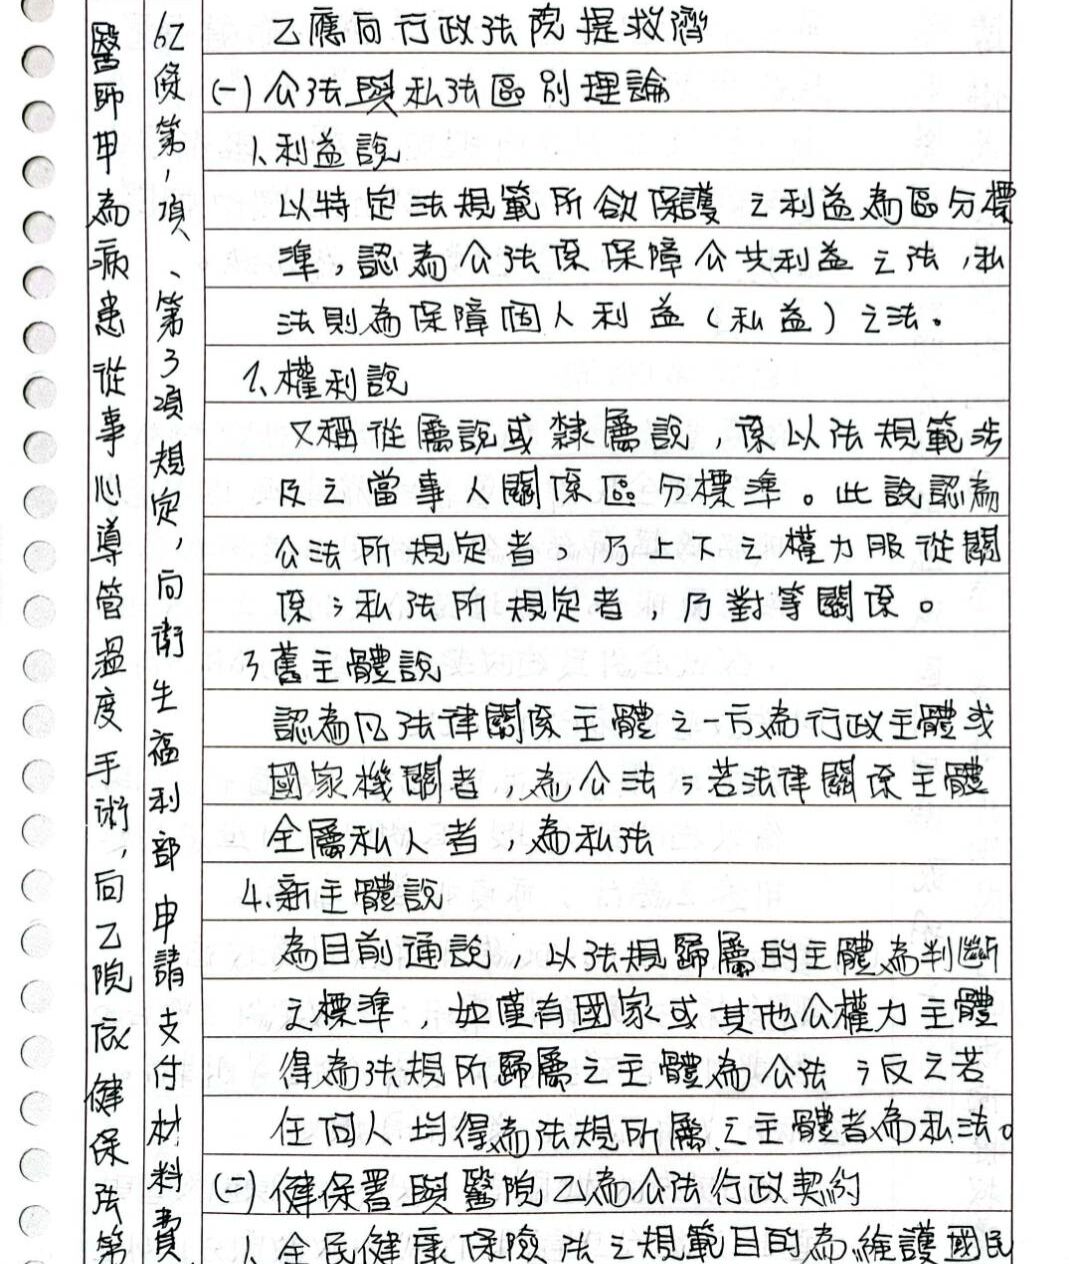 醫師甲為病患從事心導管溫度手術，向乙院依健保法第
62條第1項、第3項規定，向衛生福利部申請支付材料費
乙應向行政法院提救濟
(一)公法與私法區別理論
1、利益說
以特定法規範所欲保護之利益為區分標
準，認為公法係保障公共利益之法，私
法則為保障個人利益（私益）之法。
2、權利說
又稱從屬說或隸屬說，係以法規範涉
及之當事人關係區分標準。此說認為
公法所規定者，乃上下之權力服從關
係；私法所規定者，乃對等關係。
3舊主體說
認為凡法律關係主體之一方為行政主體或
國家機關者，為公法；若法律關係主體
全屬私人者，為私法
4.新主體說
為目前通說，以法規歸屬的主體為判斷
之標準，如僅有國家或其他公權力主體
得為法規所歸屬之主體為公法；反之若
任何人均得為法規所屬之主體者為私法。
(二)健保署與醫院乙為公法行政契約
1、全民健康保險法之規範目的為維護國民